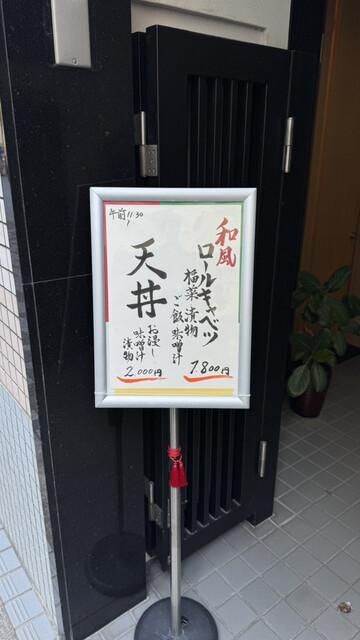 和風
ロールキャベツ
福菜 漬物
ご飯 味噌汁
1.800円
午前11:30
〜
天丼
お浸し
味噌汁
漬物
2.000円